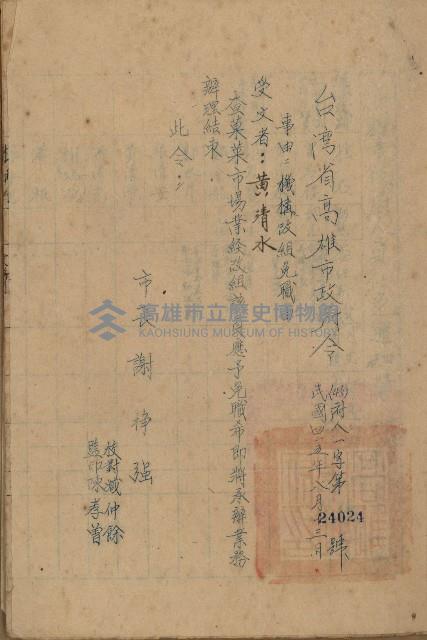 台湾省高雄市政府令
(45)府人一字第24024號
民國四五年八月三日
事由：機構改組免職由
受文者：黃清水
一查菓菜市場業経改組該員應予免職希即將承辦業務
辦理結束
此令：
市長謝掙强
校對臧仲餘
監印陳孝曾
高雄市立歷史博物館
KAOHSIUNG MUSEUM OF HISTORY